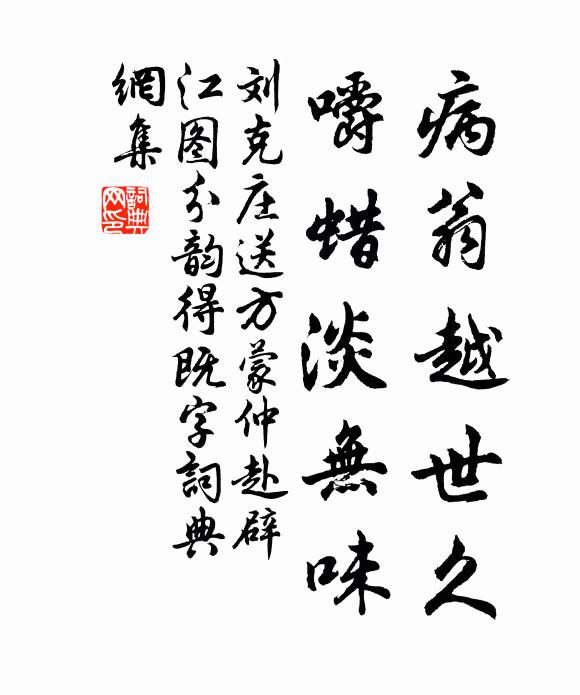 病翁越世久
嚼蜡淡無味
刘克庄送方蒙仲赴辟
江图分韵得既字詞典
網集
詞典网印